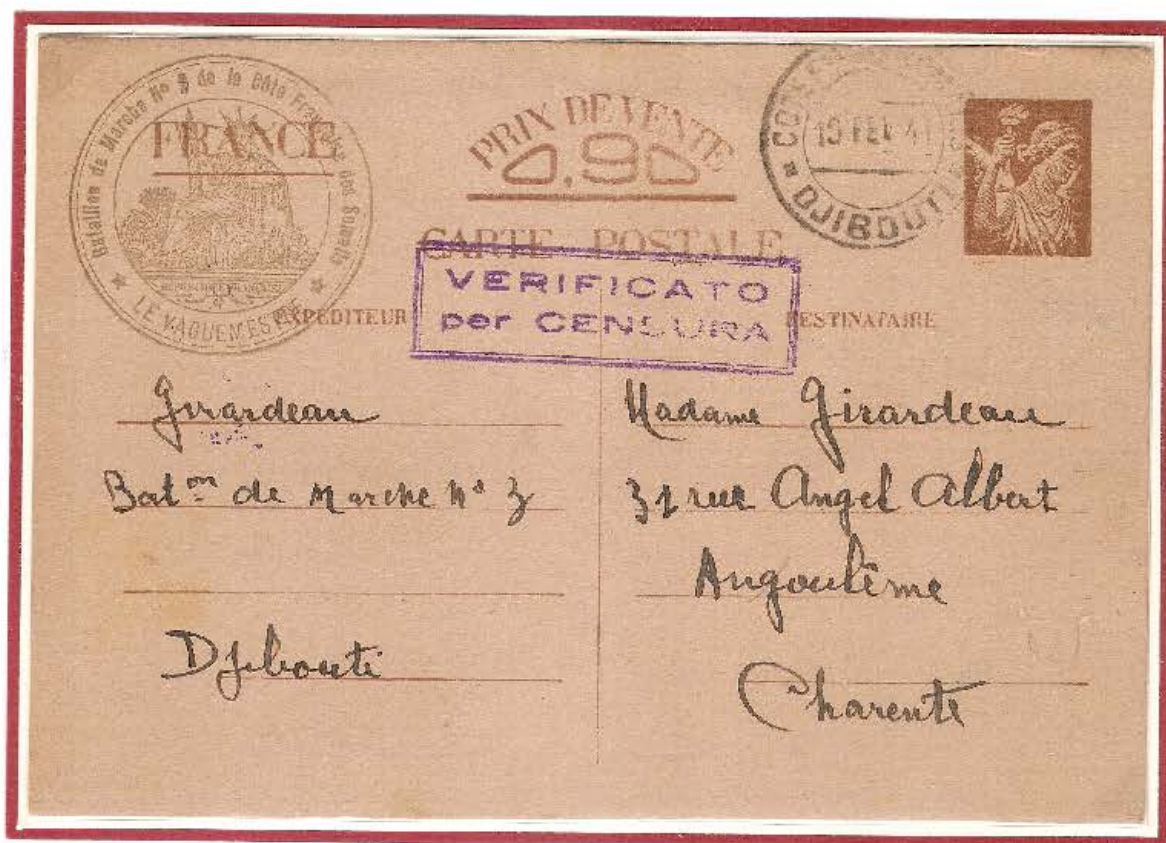 Bataillon de Marche No 3 de la Côte Française des Somalis
LE VAGUEMESTRE
FRANCE
PRIX DE VENTE
0,90
DJIBOUTI
CARTE POSTALE
VERIFICATO
per CENSURA
EXPÉDITEUR
DESTINATAIRE
Girardeau
Bat^on de Marche N° 3
Djibouti
Madame Girardeau
31 rue Angel Albert
Angoulême
Charente